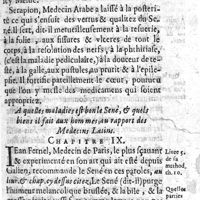 Serapion, Medecin Arabe a laissé à la posteri-
té ce qui s'ensuit des vertus & qualitez du Se-
né. Il sert, dit-il merueilleusement à la resuerie,
à la folie, aux fissures & retirements, du corps,
au col, à la resolution des nerfs, à la phthiriase,
(c'est la maladie pediculaire,) à la douleur de
teste, à la galle, aux pustules, au prurit & à l'epile-
psie. Il fortifie pareillement le cœur, pourueu
qu'on y adiouste quelques medicaments, qui
puissent
A quelles maladies est bon le Sené, & quels
biens il fait aux hommes, au rapport des
Medecins Latins.
CHAPITRE IX.
Iean Fernel, Medecin de Paris, le plus sçauant
& experimenté en son art qui ait esté depuis
Galien, recommande le Sené en ces paroles, au
liure, & chap. cy dessus citez. Le Sené (dit-il) purge
l'humeur melancolique & bruslée, & la bile, &
Liure 5.
de la
method.
ch. 10.
Quelles
parties